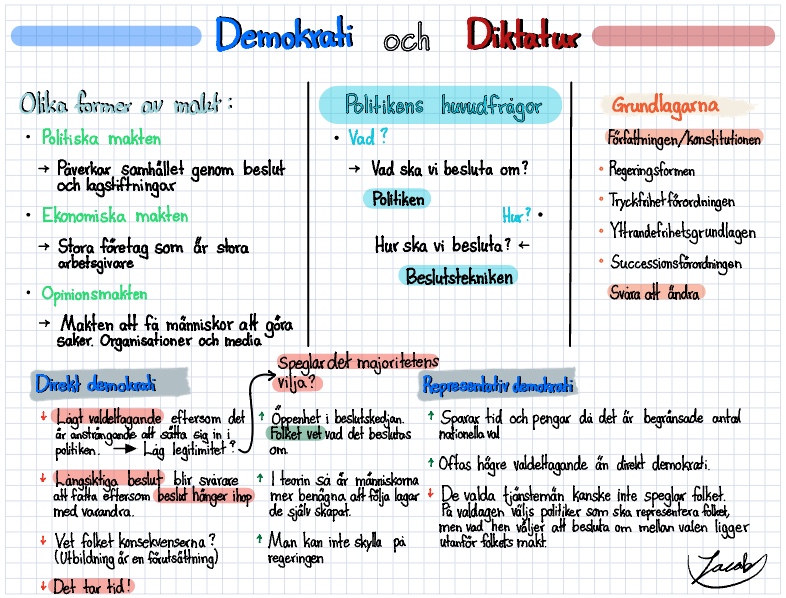 Demokrati och Diktatur
Olika former av makt:
• Politiska makten
→ Påverkar samhället genom beslut
och lagstiftningar
• Ekonomiska makten
→ Stora företag som är stora
arbetsgivare
• Opinionsmakten
→ Makten att få människor att göra
saker. Organisationer och media
Politikens huvudfrågor
• Vad?
→ Vad ska vi besluta om?
Politiken
Hur? •
Hur ska vi besluta? ←
Beslutstekniken
Grundlagarna
Författningen/konstitutionen
• Regeringsformen
• Tryckfrihetförordningen
• Yttrandefrihetsgrundlagen
• Successionsförordningen
Svåra att ändra
Direkt demokrati
↓ Lågt valdeltagande eftersom det
är ansträngande att sätta sig in i
politiken. → Låg legitimitet?
Speglar det majoritetens
vilja?
↓ Långsiktiga beslut blir svårare
att fatta eftersom beslut hänger ihop
med varandra.
↓ Vet folket konsekvenserna?
(Utbildning är en förutsättning)
↓ Det tar tid!
↑ Öppenhet i beslutskedjan.
Folket vet vad det beslutas
om.
↑ I teorin så är människorna
mer benägna att följa lagar
de själv skapat.
↑ Man kan inte skylla på
regeringen
Representativ demokrati
↑ Sparar tid och pengar då det är begränsade antal
nationella val
↑ Oftas högre valdeltagande än direkt demokrati.
↓ De valda tjänstemän kanske inte speglar folket.
På valdagen väljs politiker som ska representera folket,
men vad hen väljer att besluta om mellan valen ligger
utanför folkets makt.
Jacob